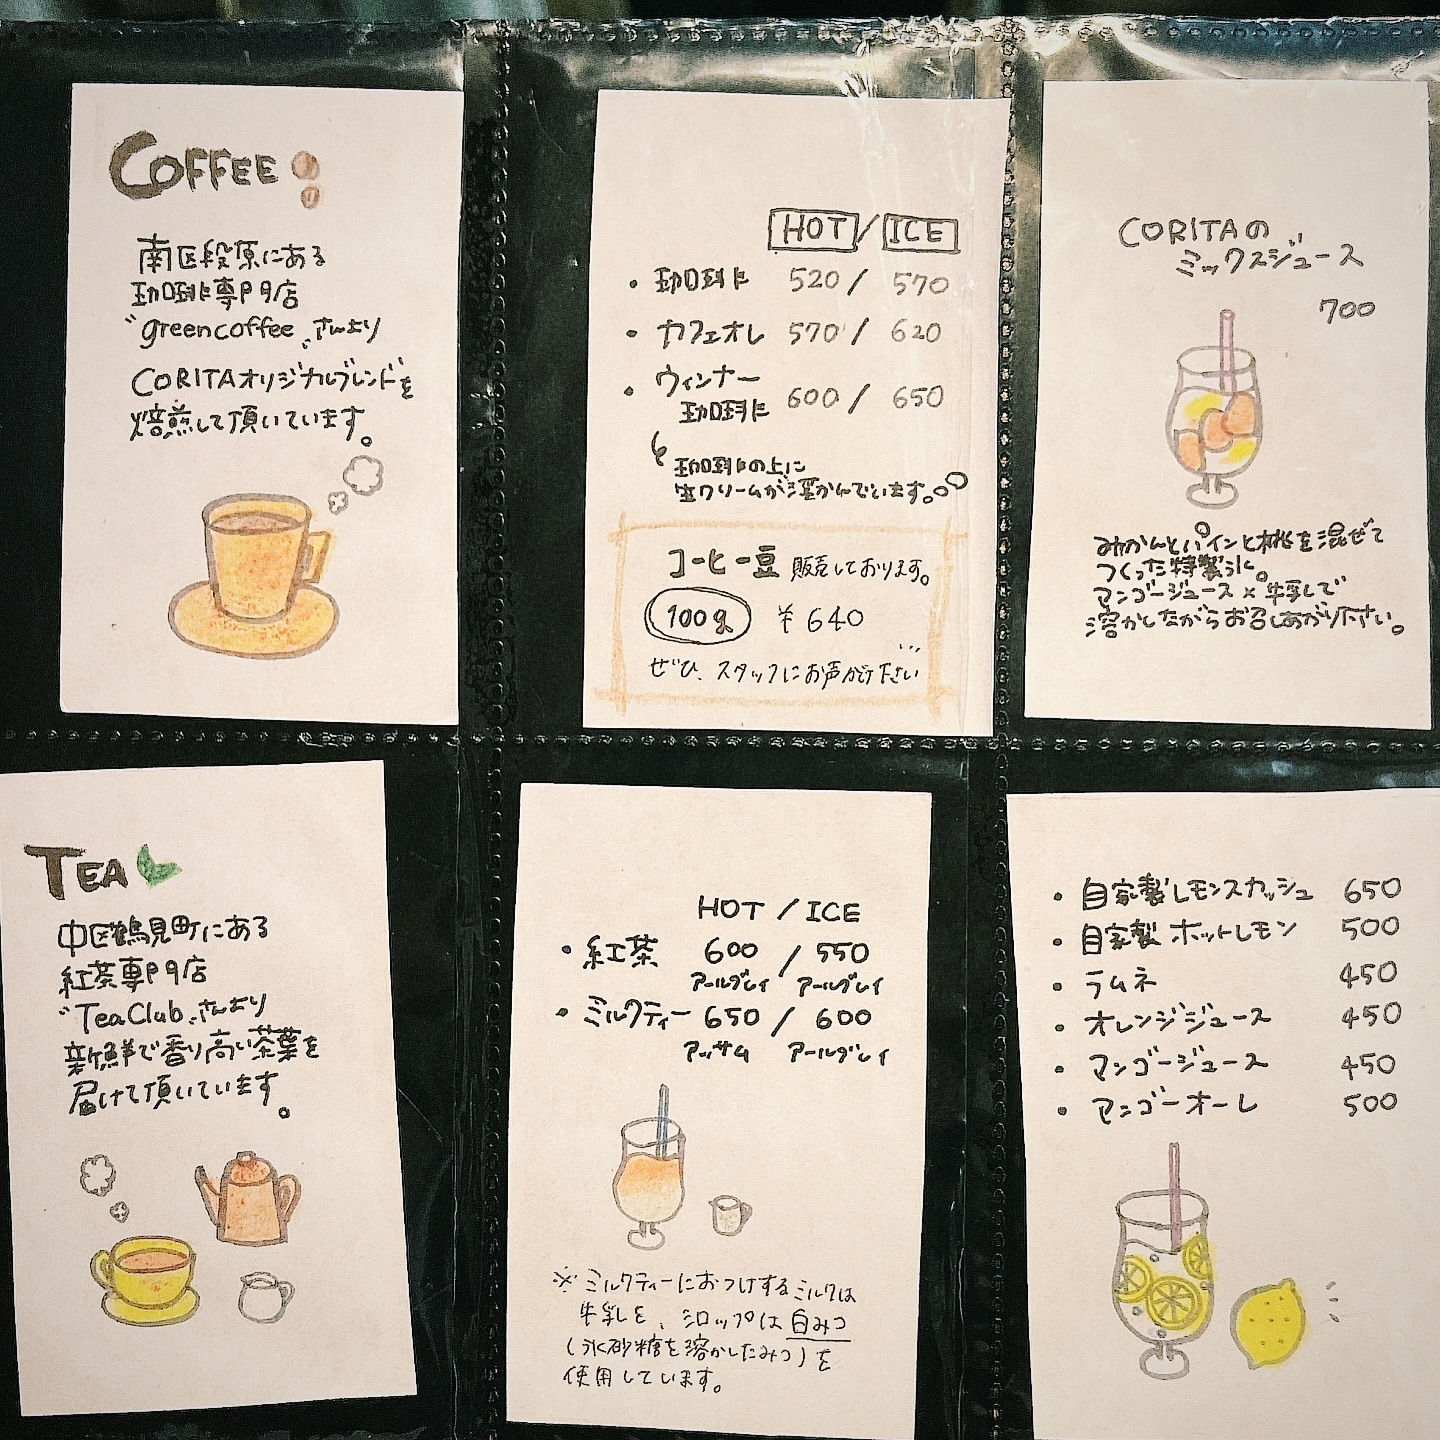 COFFEE
南区段原にある
珈琲専門店
"greencoffee„さんより
CORITAオリジナルブレンドを
焙煎して頂いています。
HOT / ICE
・珈琲 520 / 570
・カフェオレ 570 / 620
・ウィンナー
珈琲 600 / 650
珈琲の上に
生クリームが浮かんでいます。
コーヒー豆 販売しております。
100g ¥640
ぜひ、スタッフにお声がけ下さい…
CORITAの
ミックスジュース
700
みかんとパインと桃を混ぜて
つくった特製氷。
マンゴージュース×牛乳で
溶かしながらお召しあがり下さい。
TEA
中区鶴見町にある
紅茶専門店
"TeaClub„さんより
新鮮で香り高い茶葉を
届けて頂いています。
HOT / ICE
・紅茶 600 / 550
アールグレイ アールグレイ
・ミルクティー 650 / 600
アッサム アールグレイ
※ミルクティーにおつけするミルクは
牛乳を、シロップは白みつ
(氷砂糖を溶かしたみつ)を
使用しています。
・自家製レモンスカッシュ 650
・自家製ホットレモン 500
・ラムネ 450
・オレンジジュース 450
・マンゴージュース 450
・マンゴーオーレ 500